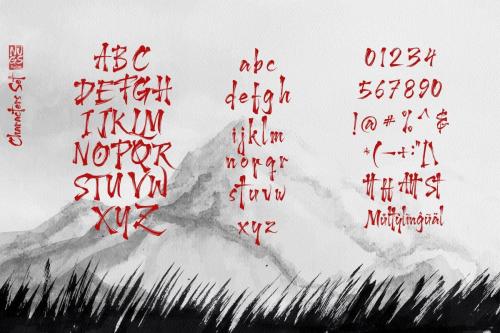 Characters Set
ABC
DEFGH
IJKLM
NOPQR
STUVW
XYZ
abc
defgh
ijklm
nopqr
stuvw
xyz
01234
567890
!@#%^&
*(–+:"[\
tt ff Att St
Mültÿlingüäl